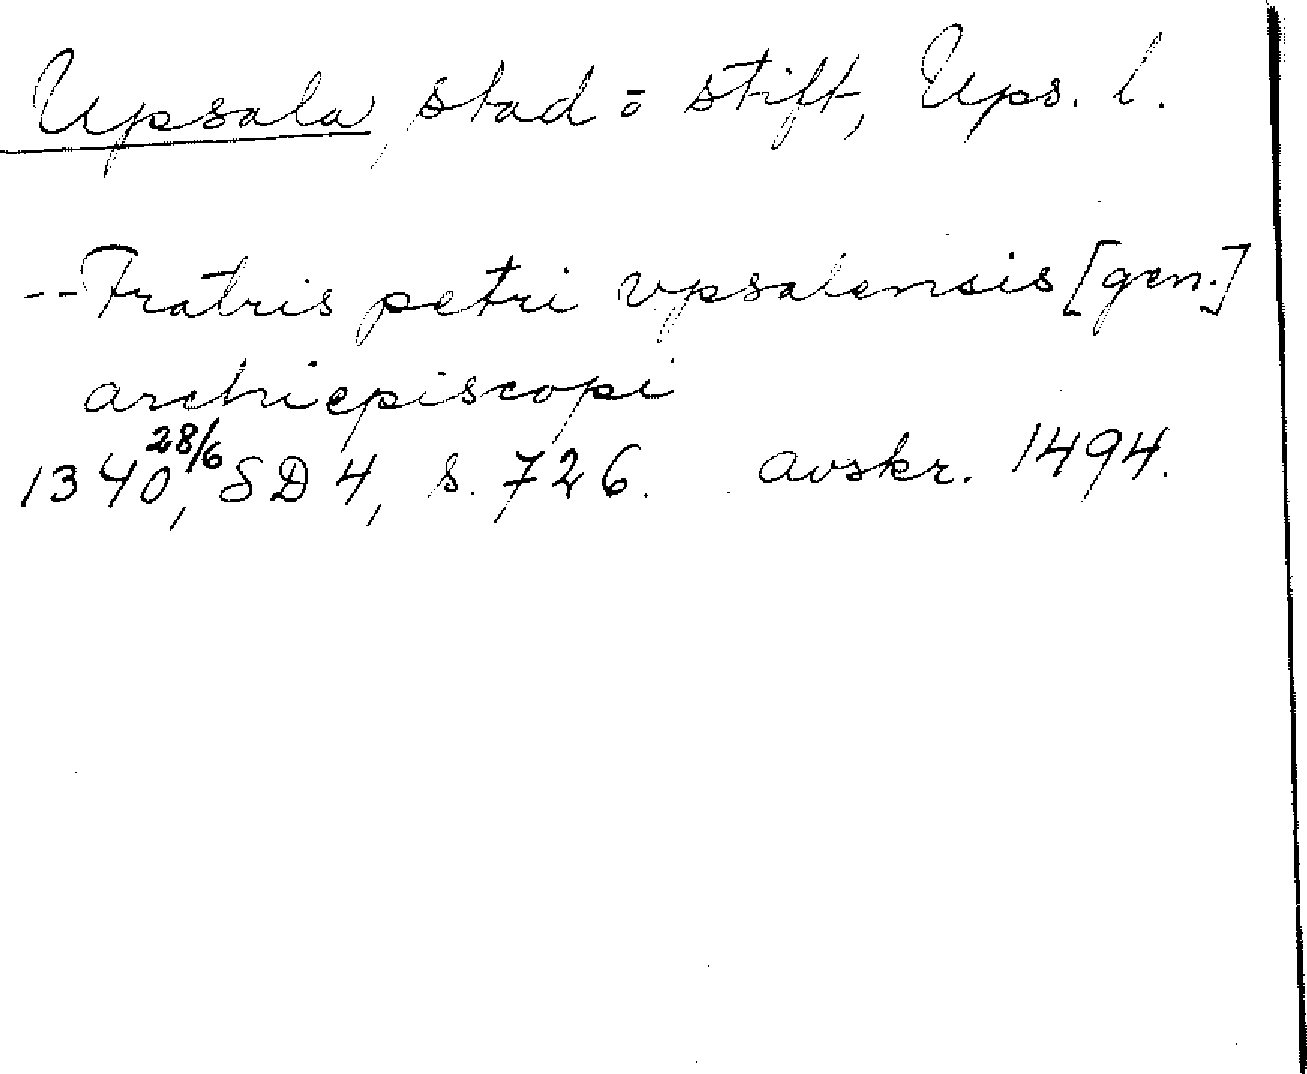 Upsala, stad o stift, Ups. l.
--Fratris petri vpsalensis [gen.]
archiepiscopi
1340 28/6, SD 4, s. 726. avskr. 1494.